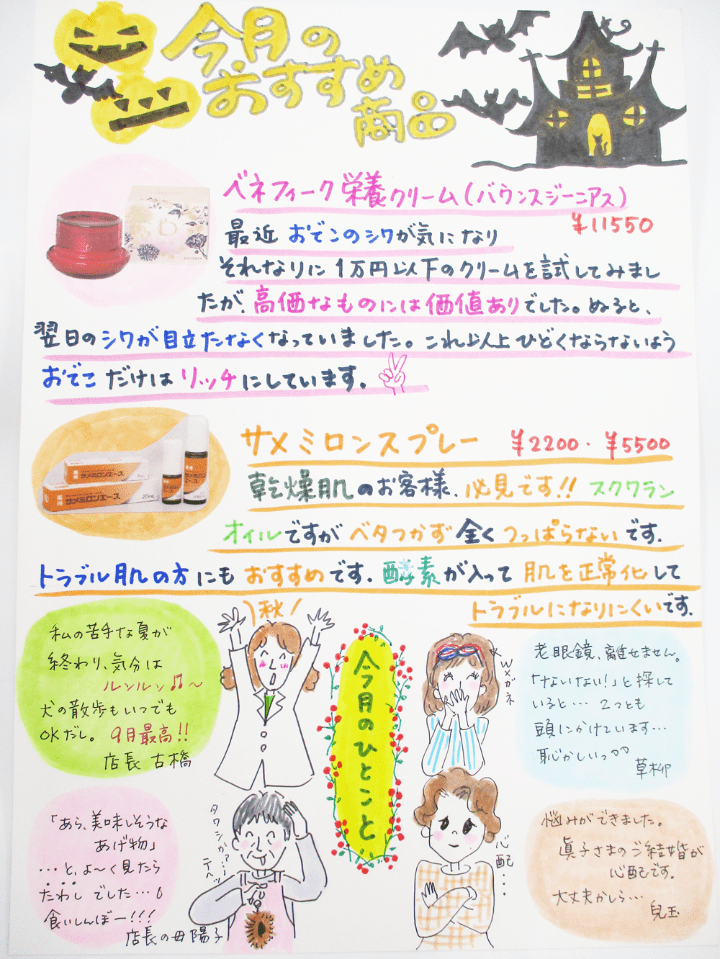 今月の
おすすめ
商品
ベネフィーク栄養クリーム(バウンスジーニアス)
¥11550
最近 おでこのシワが気になり
それなりに1万円以下のクリームを試してみまし
たが、高価なものには価値ありでした。ぬると、
翌日のシワが目立たなくなっていました。これ以上ひどくならないよう
おでこだけはリッチにしています。
サメミロンスプレー ¥2200・¥5500
サメミロンエース
サメミロンエース
20mL
乾燥肌のお客様、必見です!! スクワラン
オイルですがベタつかず全くつっぱらないです。
トラブル肌の方にもおすすめです。酵素が入って肌を正常化して
トラブルになりにくいです。
私の苦手な夏が
終わり、気分は
ルンルン♫〜
犬の散歩もいつでも
OKだし。9月最高!!
店長 古橋
\秋/
今月のひとこと
Wメガネ
老眼鏡、離せません。
「ないない!」と探して
いると…2つとも
頭にかけています…
恥かしいっ
草柳
「あら、美味しそうな
あげ物」
…と、よ〜く見たら
たわしでした…
食いしんぼー!!!
店長の母 陽子
タワシかァ…
テヘッ
心配…
悩みができました。
眞子さまのご結婚が
心配です。
大丈夫かしら…
兒玉